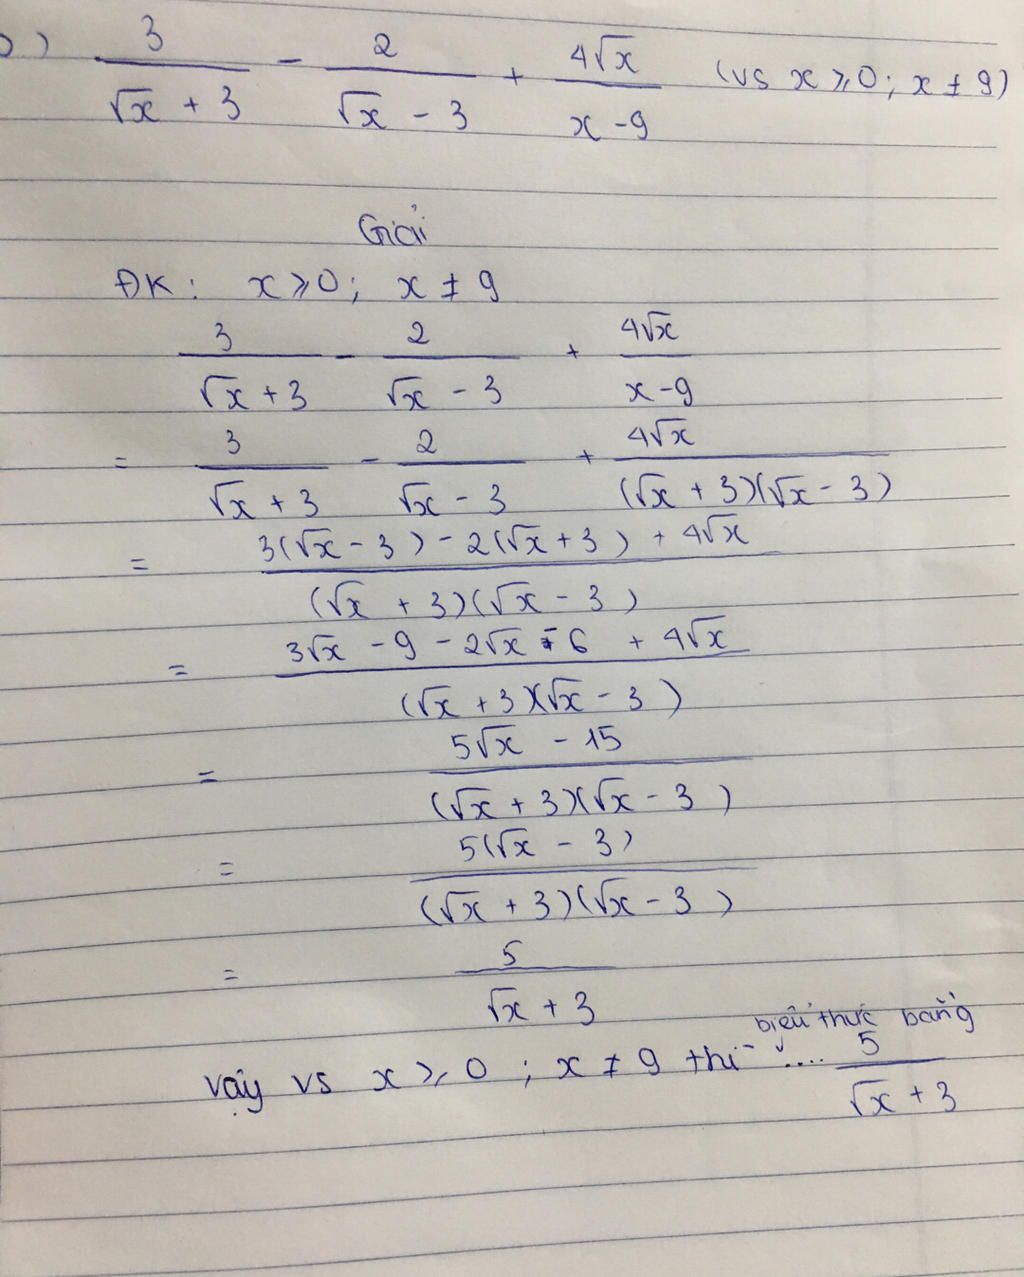 b) 3/(√x + 3) - 2/(√x - 3) + 4√x/(x - 9) (vs x ⩾ 0; x ≠ 9)
Giải
ĐK: x ⩾ 0; x ≠ 9
3/(√x + 3) - 2/(√x - 3) + 4√x/(x - 9)
= 3/(√x + 3) - 2/(√x - 3) + 4√x/((√x + 3)(√x - 3))
= (3(√x - 3) - 2(√x + 3) + 4√x)/((√x + 3)(√x - 3))
= (3√x - 9 - 2√x - 6 + 4√x)/((√x + 3)(√x - 3))
= (5√x - 15)/((√x + 3)(√x - 3))
= 5(√x - 3)/((√x + 3)(√x - 3))
= 5/(√x + 3)
Vậy vs x ⩾ 0; x ≠ 9 thì biểu thức bằng .... 5/(√x + 3)